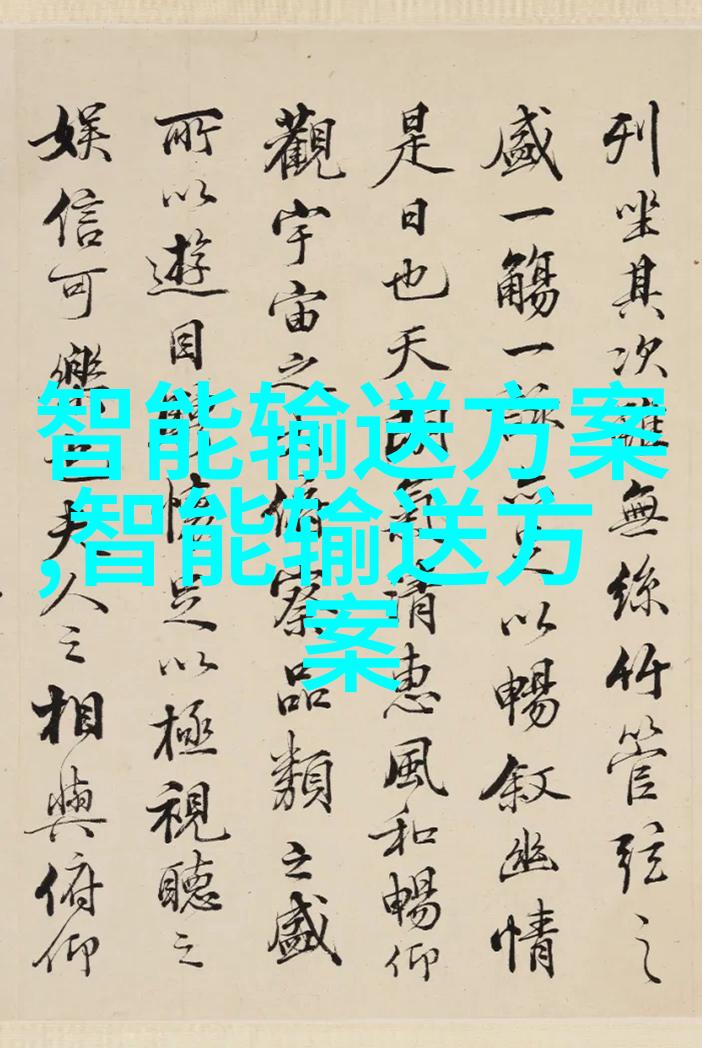 列坐其次雖無絲竹管弦之
盛一觴一詠以暢叙幽情
是日也天朗氣清惠風和暢仰
觀宇宙之俯察品類之盛
所以遊目懷足以極視聽之
娱信可樂也夫人之相與俯仰
智能输送方案
,智能输送方
案